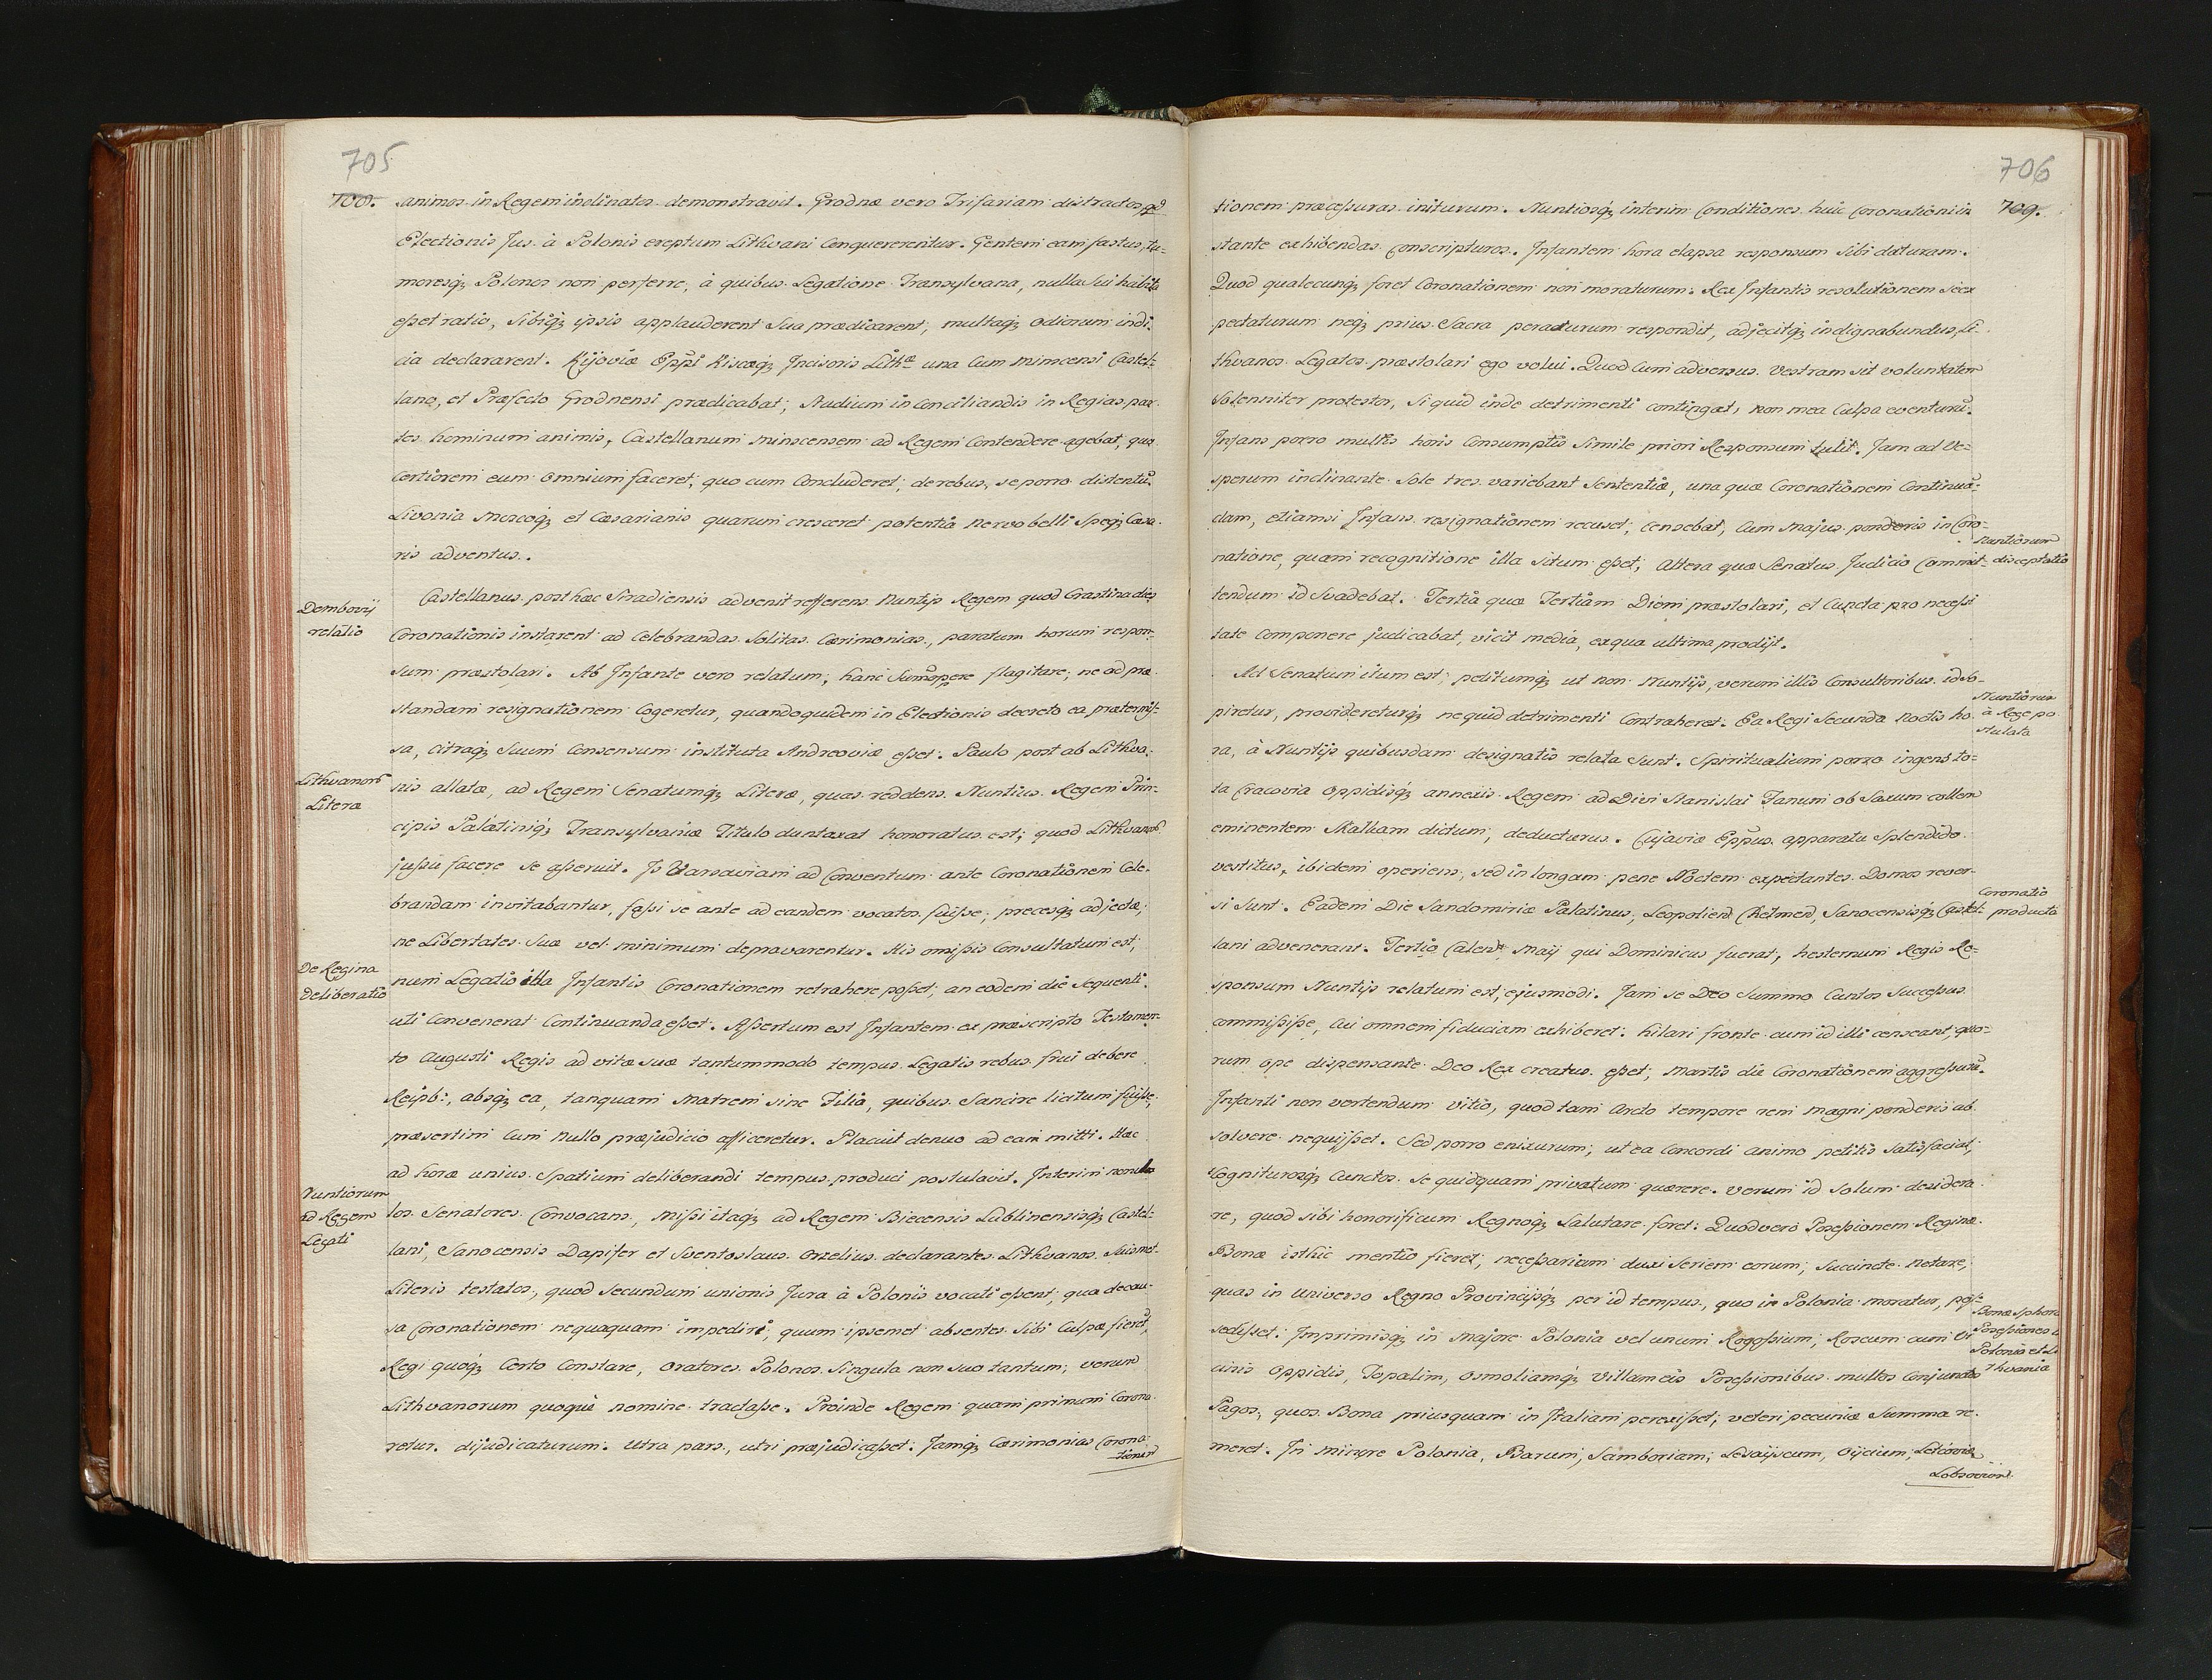 705
700.
animos in Regem inclinatos demonstravit. Grodnæ vero Trifariam distractos qd
Electionis Jus à Polonis ereptum Lithvani Conquererentur. Gentem eam fastus, tu-
moresq; Polonos non perferre, à quibus Legatione Transylvana, nulla Sui habita
eßet ratio, Sibiq; ipsis applauderent Sua prædicarent, multaq; odiorum indi-
cia declararent. Kijoviæ Epp̃i Kiscæq; Incisoris Lithæ una Cum Minscensi Castel-
lano, et Præfecto Grodnensi prædicabat, Studium in Conciliandis in Regias par-
tes hominum animis, Castellanum Minscensem ad Regem Contendere agebat, qua
Certiorem eum omnium faceret, quo cum Concluderet, de rebus, se porro distentũ
Livonia Moscoq; et Cæsarianis quorum cresceret potentia nervo belli Speq; Cæsa-
ris adventus.
Dembovij
relatio
Castellanus post hæc Siradiensis advenit refferens Nuntijs Regem quod Crastina dies
Coronationis instarent ad Celebrandas Solitas Cærimonias, paratum horum respon-
sum præstolari. Ab Infante vero relatum, hanc Sumopere flagitare, ne ad præ-
standam resignationem Cogeretur, quandoquidem in Electionis decreto ea prætermis-
sa, citraq; Suum Consensum instituta Andreoviæ eßet. Paulo post ab Lithva-
Lithvanorũ
Literæ
nis allatæ, ad Regem Senatumq; Literæ, quas reddens Nuntius Regem Prin-
cipis Palatiniq; Transylvaniæ Titulo duntaxat honoratus est, quod Lithvanorũ
jußu facere se aßeruit. Is Varsaviam ad Conventum ante Coronationem Cele-
brandam invitabantur, faßi se ante ad eandem vocatos fuiße, precesq; adjectæ,
ne Libertates Suæ vel minimum depravarentur. His omißis Consultatum est,
De Regina
Deliberatio
num Legatio illa Infantis Coronationem retrahere poßet, an eodem die Sequenti
uti Convenerat Continuanda eßet. Aßertum est Infantem ex præscripto Testamen-
to Augusti Regis ad vitæ suæ tantummodo tempus Legatis rebus frui debere
Reipb:, absq; ea, tanquam Matrem sine Filia, quibus Sancire licitum fuiße,
præsertim Cum nullo præjudicio afficeretur. Placuit denuo ad eam mitti. Hæc
ad horæ unius Spatium deliberandi tempus produci postulavit. Interim nonul-
Nuntiorum
ad Regem
Legati
los Senatores Convocans, Mißi itaq; ad Regem Biecensis Lublinensisq; Castel-
lani, Sanocensis Dapifer et Sventoslaus Orzelius declarantes Lithvanos Suismet
Literis testatos, quod Secundum unionis Jura à Polonis vocati eßent, qua de cau-
sa Coronationem nequaquam impediri, quum ipsemet absentes Sibi Culpæ fieret,
Regi quoq; Certo Constare, Oratores Polonos Singula non suo tantum, verum
Lithvanorum quoque nomine tractaße. Proinde Regem quam primum Corona-
retur. dijudicaturum. Utra pars, utri præjudicaßet. Jamq; Cærimonias Corona-
tionem
706
709.
tionem præceßuras initurum. Nuntiosq; interim Conditiones huic Coronationi in-
stante exhibendas Conscripturos. Infantem hora elapsa responsum Sibi daturam.
Quod qualecunq; foret Coronationem non moraturum. Rex Infantis resolutionem se ex
pectaturum neq; prius Sacra peracturum respondit, adjecitq; indignabundus, Li-
thvanos Legatos præstolari ego volui. Quod Cum adversus Vestram sit voluntatem
Solenniter protestor, Si quid inde detrimenti contingat, non mea Culpa eventurũ.
Infans porro multis horis Consumptis Simile priori Responsum tulit. Jam ad Ve-
sperum inclinante Sole tres variebant Sententiæ, una quæ Coronationem Continuã-
dam, etiamsi Infans resignationem recuset, Censebat, Cum Majus ponderis in Coro-
Nuntiorum
disceptatio
natione, quam recognitione illa Situm eßet, Altera quæ Senatus Judicio Commit-
tendum id Svadebat. Tertia quæ Tertiam Diem præstolari, et Cuncta pro neceßi
tate Componere judicabat, vicit media, ex qua ultima prodijt.
Ad Senatum itum est, petitumq; ut non Nuntijs, verum illis Consultoribus id So-
Nuntiorum
à Rege po
stulata
piretur, providereturq; ne quid detrimenti Contraheret. Ea Regi Secunda Noctis ho-
ra, à Nuntijs quibusdam designatis relata Sunt. Spiritualium porro ingens to-
ta Cracovia oppidisq; annexis Regem ad Divi Stanislai Fanum ob Saxum collem
eminentem Skalkam dictum, deducturus. Cujaviæ Epp̃us apparatu Splendido
vestitus, ibidem operiens, sed in longam pene Noctem expectantes Domos rever-
Coronatio
producta
si Sunt. Eadem Die Sandomiriæ Palatinus, Leopoliens Chelmens, Sanocensisq; Castel-
lani advenerant. Tertio Calend: Maij qui Dominicus fuerat, hesternum Regis Re-
sponsum Nuntijs relatum est, ejusmodi. Jam se Deo Summo Cunctos Succeßus
commißiße, Cui omnem fiduciam exhiberet. hilari fronte cum id illi censeant, quo-
rum ope dispensante Deo Rex creatus eßet, Martis die Coronationem aggreßurũ.
Infanti non vertendum vitio, quod tam Arcto tempore rem magni ponderis ab
solvere nequijßet. Sed porro enixurum, ut ea Concordi animo petitis Satisfaciat,
Cogniturosq; Cunctos Se quidquam privatum quærere. Verum id Solum desidera-
re, quod sibi honorificum Regnoq; Salutare foret. Quod vero Poseßionem Reginæ
Bonæ isthic mentio fieret, neceßarium duxi Seriem eorum, Succincte Notare,
quas in universo Regno Provincijsq; per id tempus, quo in Polonia moratur, pos-
Bonæ Sphorciæ
Poseßiones in
Polonia et Li
thvania
sedißet. Imprimisq; in Majore Polonia vel unum Rogoßium, Roscum cum Vi
cinis Oppidis, Topalim, Osmoliamq; Villam eis Poseßionibus multos Conjunctos
Pagos, quos Bona priusquam in Italiam perexißet, veteri pecuniæ Summa re-
meret. In Minore Polonia, Barum, Samboriam, Lesaijscum, Oijcium,